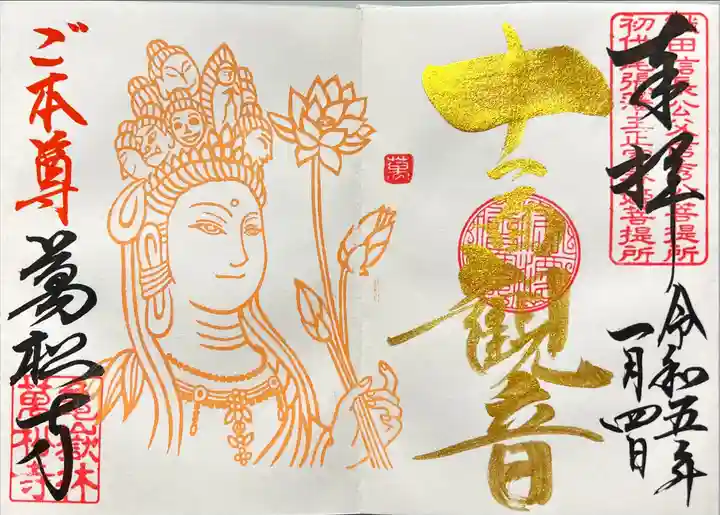 奉拝
織田信長公父信秀公菩提所
初代尾張藩主正
菩提所
令和五年
一月四日
十一面観音
萬
ご本尊
萬松寺
龜嶽林
萬松寺